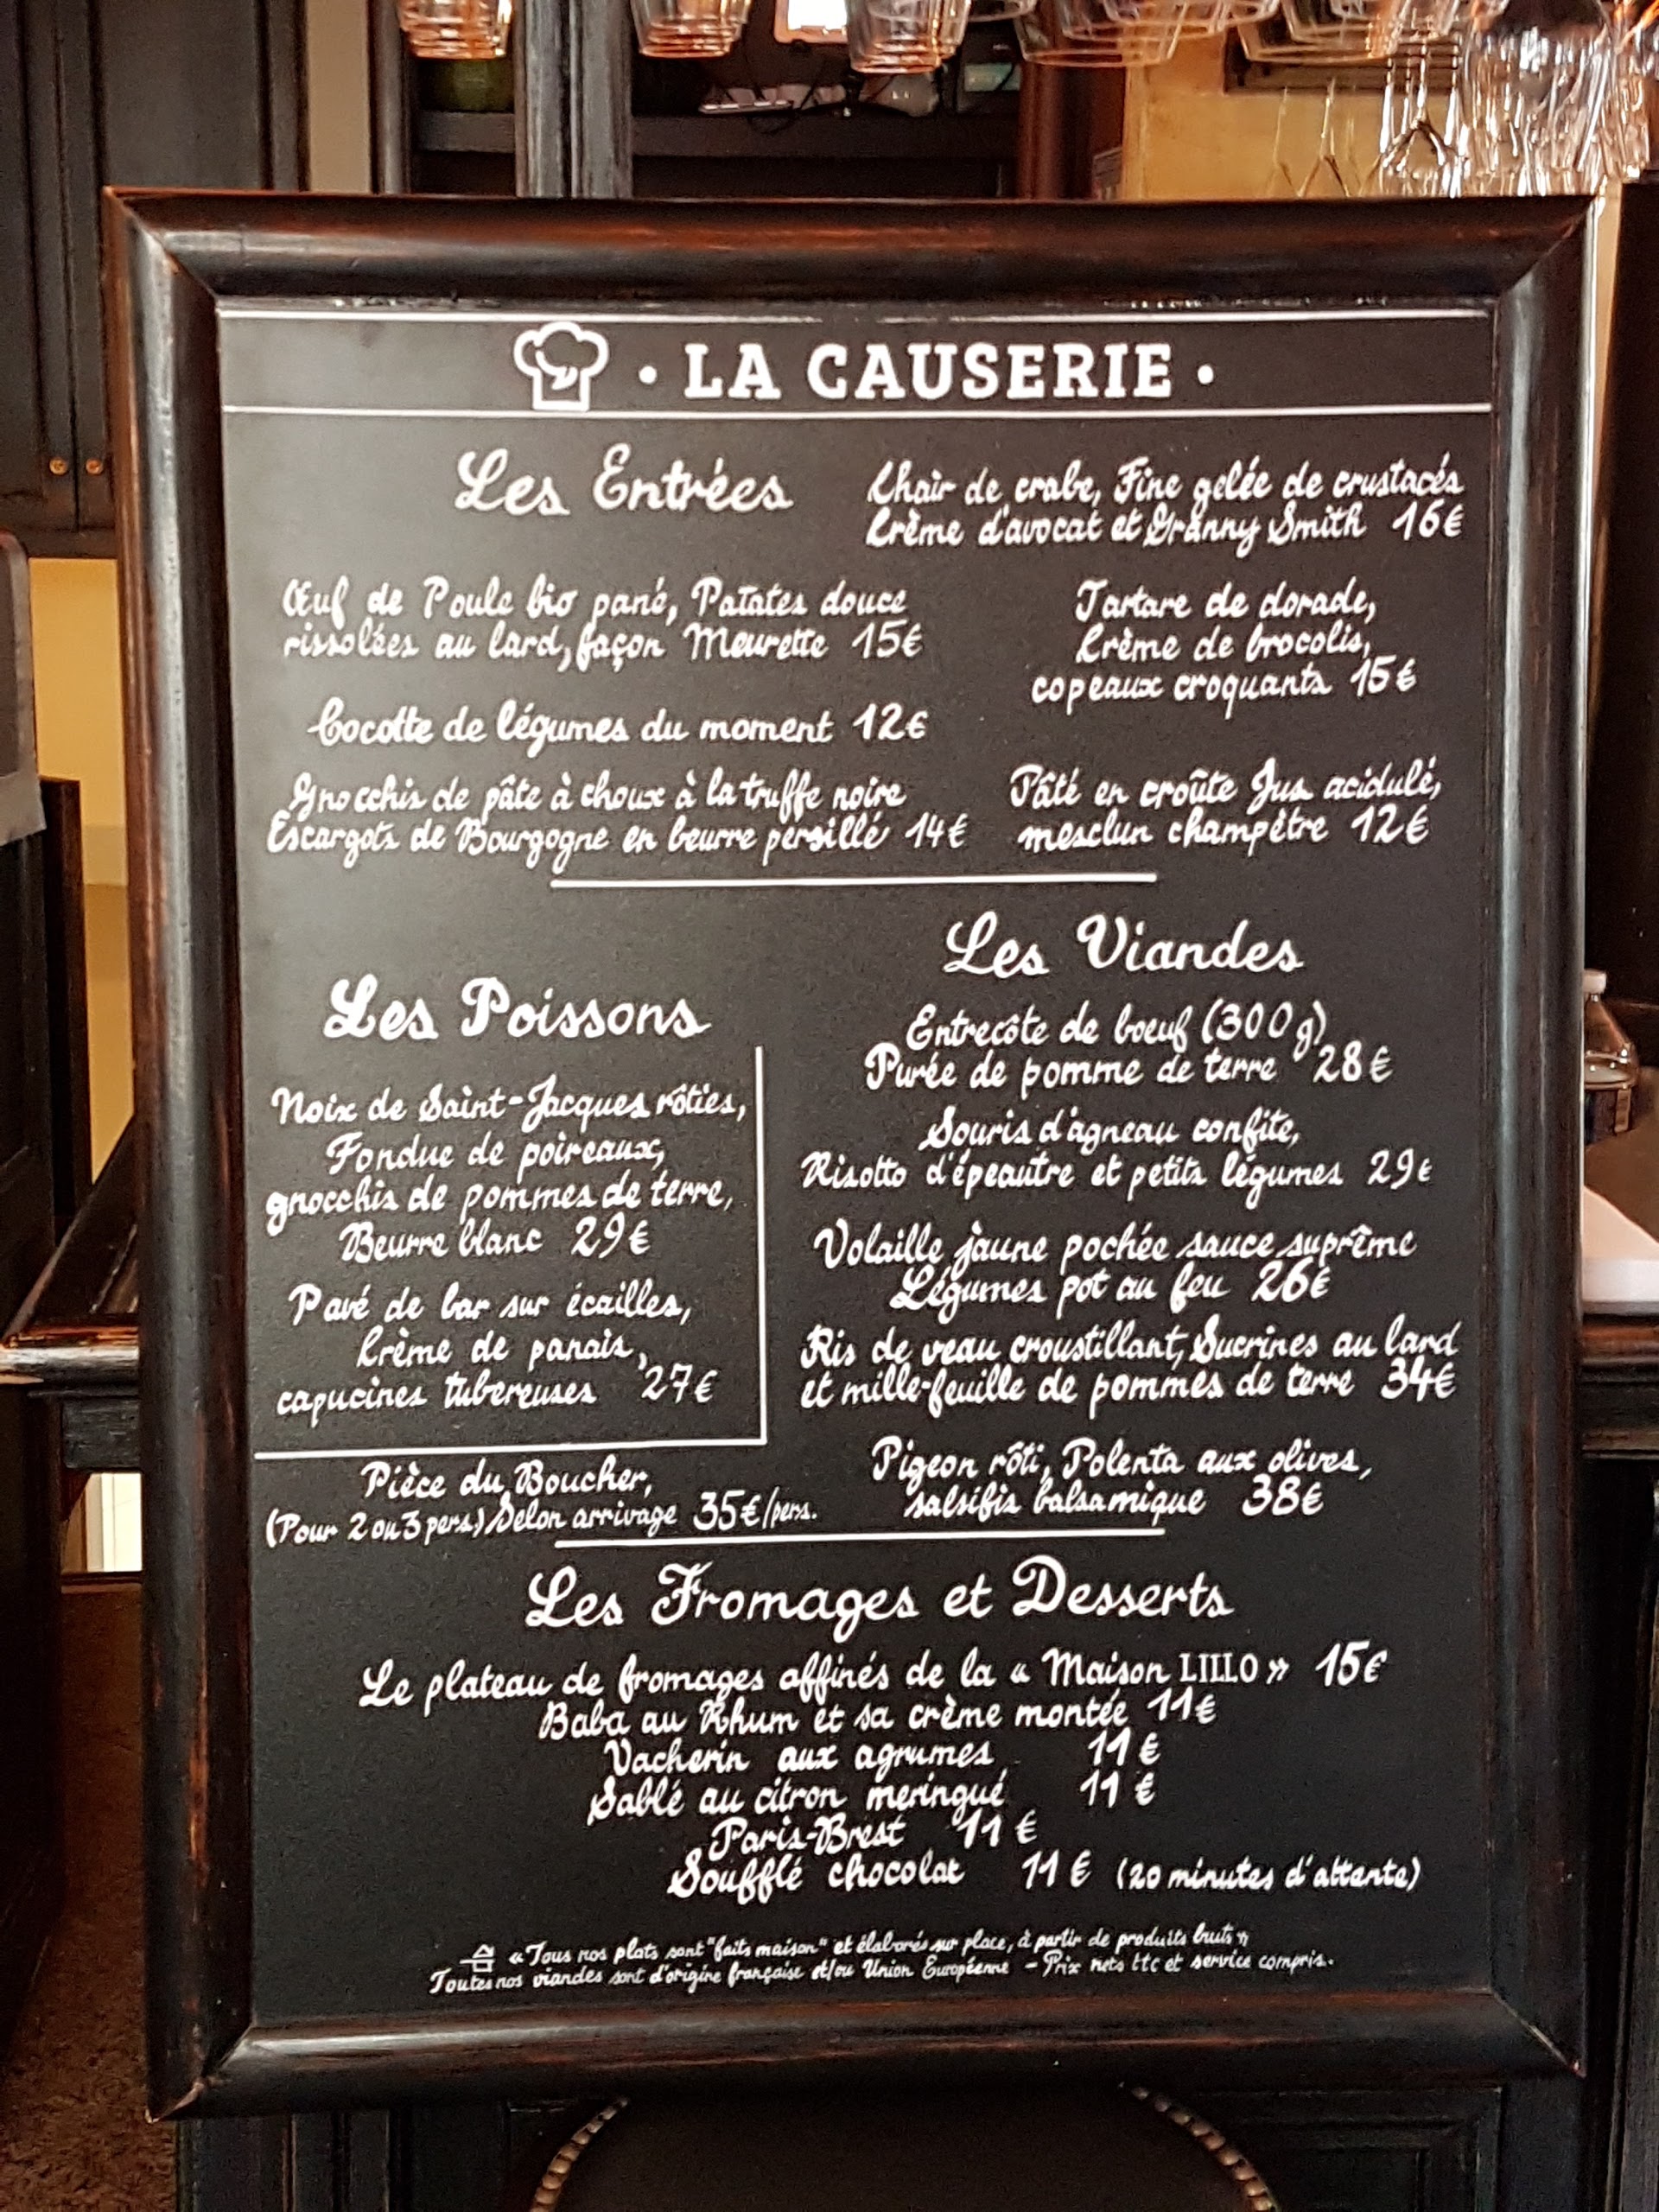 · LA CAUSERIE ·
Les Entrées
Chair de crabe, Fine gelée de crustacés
Crème d'avocat et Granny Smith 16€
Œuf de Poule bio pané, Patates douce
rissolées au lard, façon Meurette 15€
Cocotte de légumes du moment 12€
Gnocchis de pâte à choux à la truffe noire
Escargots de Bourgogne en beurre persillé 14€
Tartare de dorade,
Crème de brocolis,
copeaux croquants 15€
Pâté en croûte Jus acidulé,
mesclun champêtre 12€
Les Poissons
Noix de Saint-Jacques rôties,
Fondue de poireaux,
gnocchis de pommes de terre,
Beurre blanc 29€
Pavé de bar sur écailles,
Crème de panais,
capucines tubereuses 27€
Les Viandes
Entrecôte de boeuf (300g)
Purée de pomme de terre 28€
Souris d'agneau confite,
Risotto d'épeautre et petits légumes 29€
Volaille jaune pochée sauce suprême
Légumes pot au feu 26€
Ris de veau croustillant, Sucrines au lard
et mille-feuille de pommes de terre 34€
Pigeon rôti, Polenta aux olives,
salsifis balsamique 38€
Pièce du Boucher,
(Pour 2 ou 3 pers.) Selon arrivage 35€/pers.
Les Fromages et Desserts
Le plateau de fromages affinés de la « Maison LILLO » 15€
Baba au Rhum et sa crème montée 11€
Vacherin aux agrumes 11€
Sablé au citron meringué 11€
Paris-Brest 11€
Soufflé chocolat 11€ (20 minutes d'attente)
« Tous nos plats sont "faits maison" et élaborés sur place, à partir de produits bruts »
Toutes nos viandes sont d'origine française et/ou Union Européenne - Prix nets ttc et service compris.